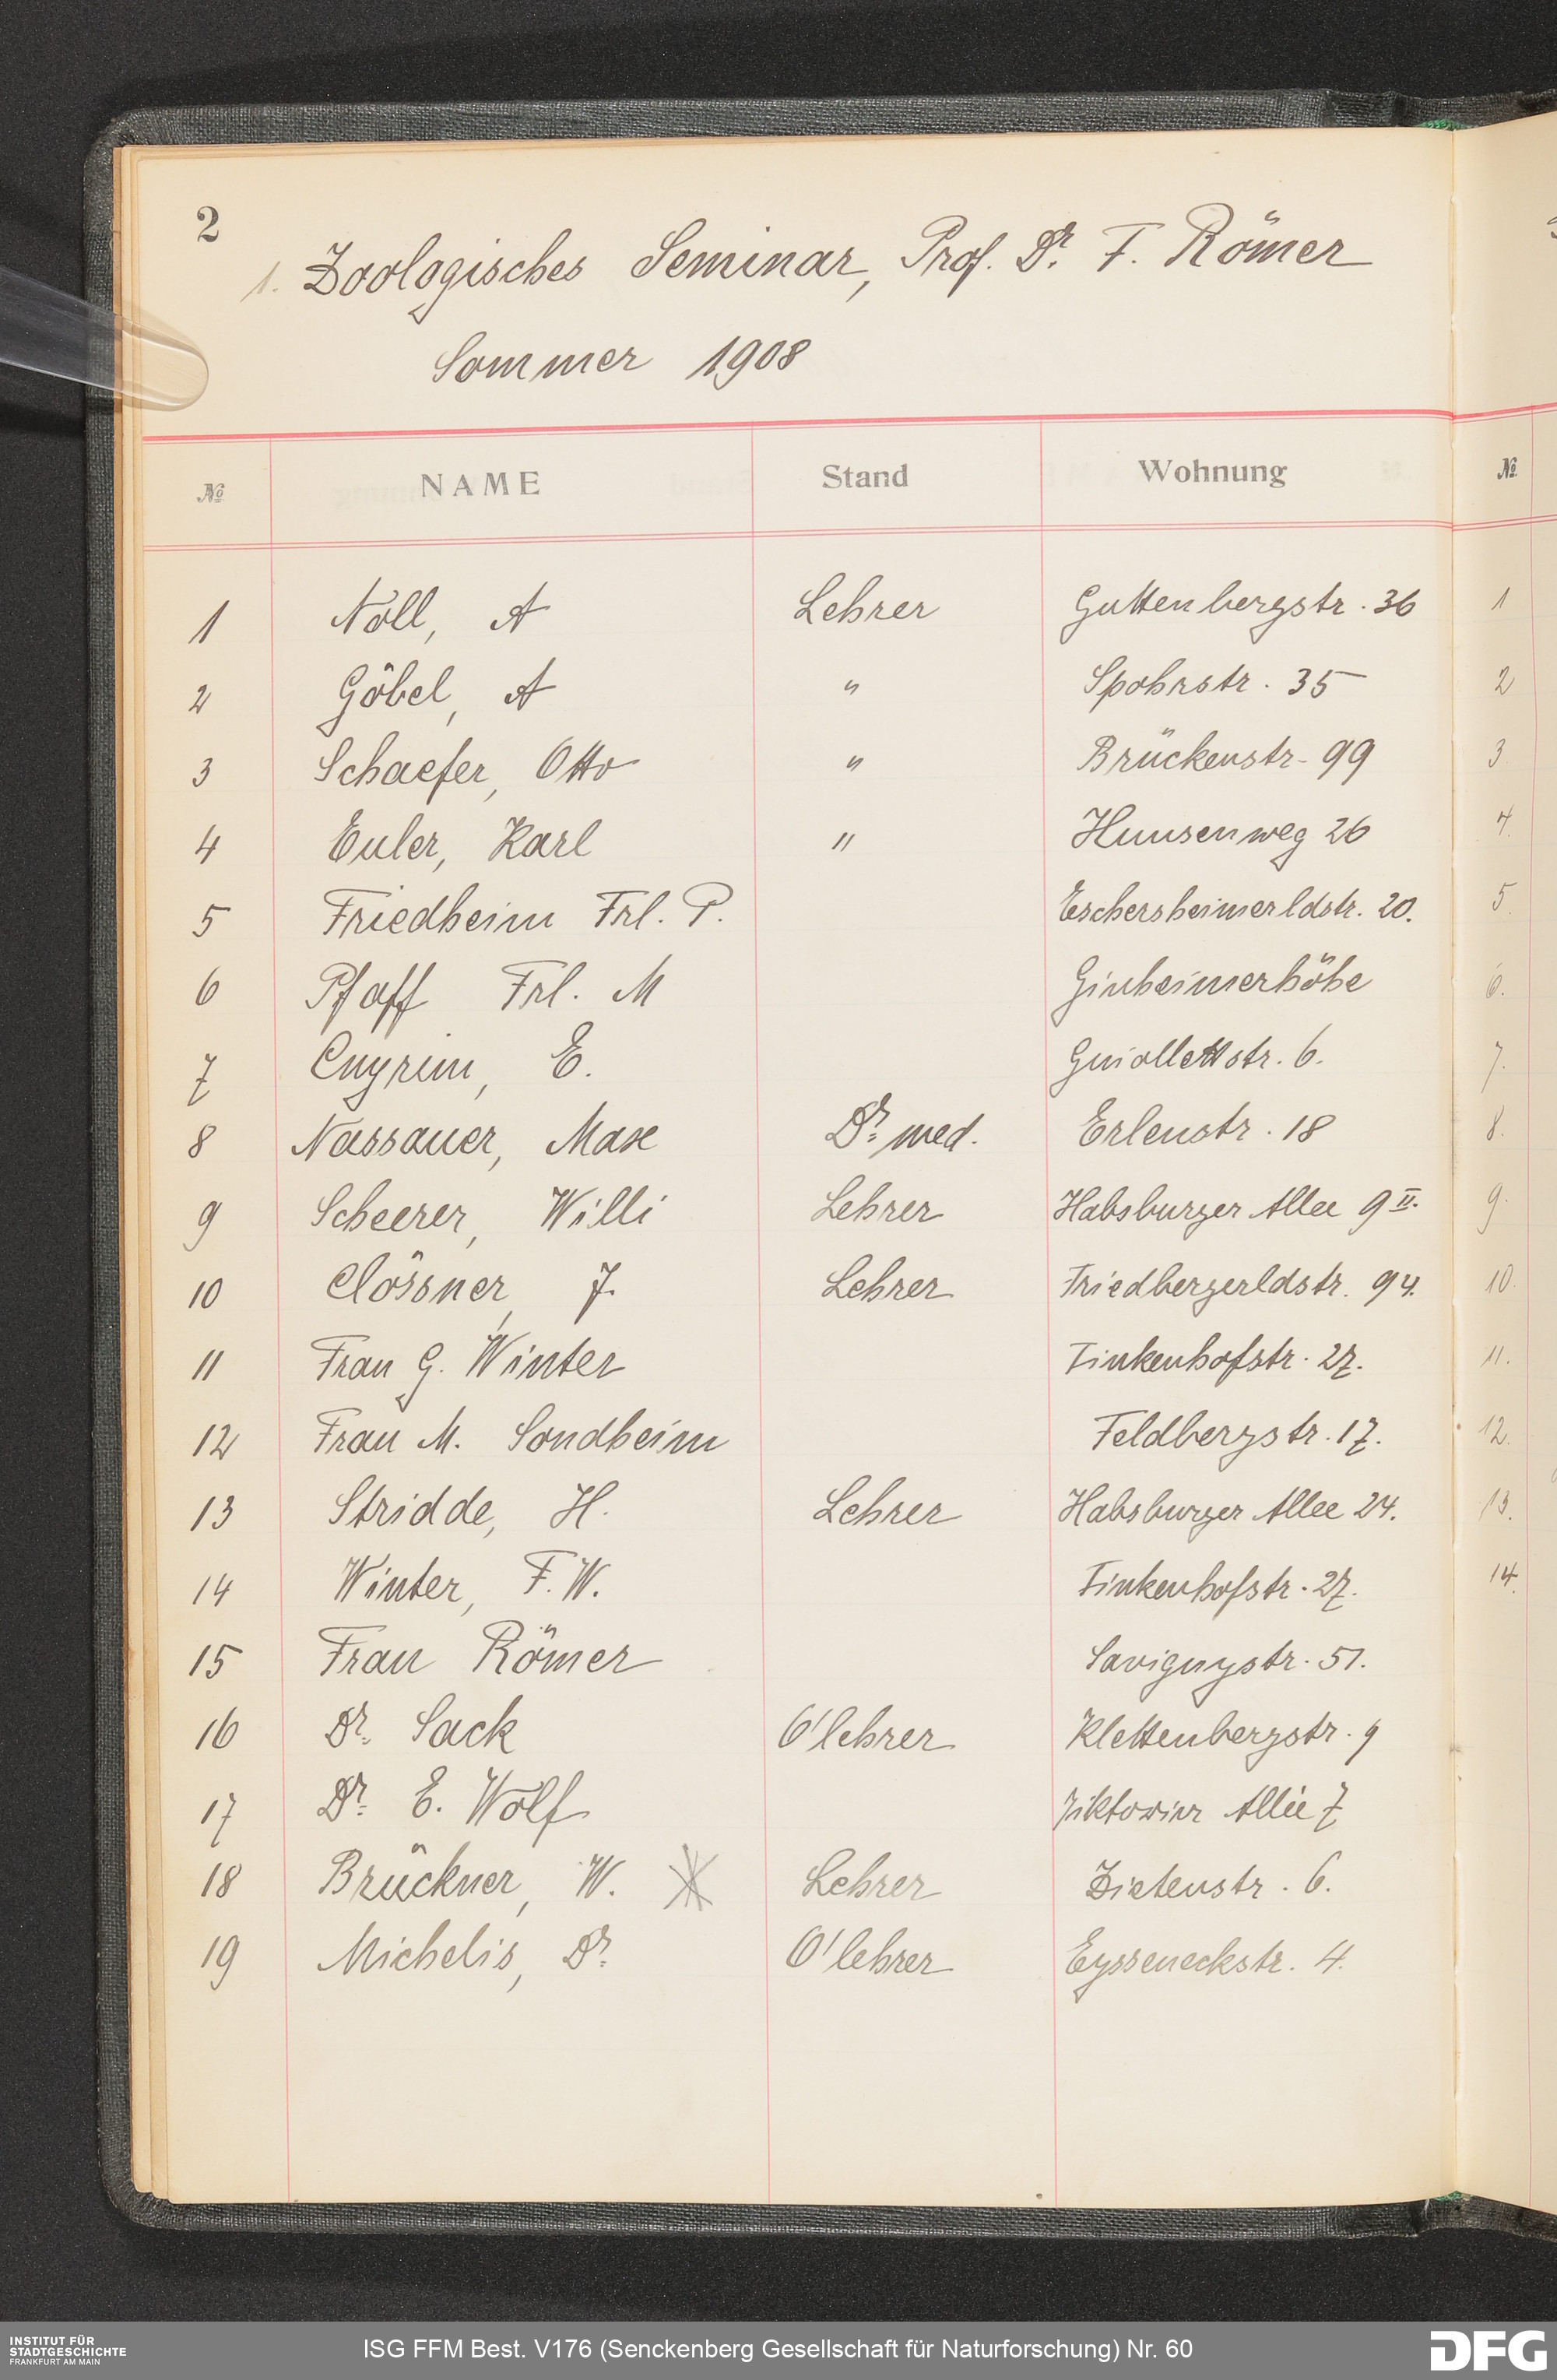 2
1. Zoologisches Seminar, Prof. Dr. F. Römer
Sommer 1908
№ NAME Stand Wohnung №
1 Noll, A Lehrer Guttenbergstr. 36 1
2 Göbel, A " Spohrstr. 35 2
3 Schaefer, Otto " Brückenstr. 99 3
4 Euler, Karl " 26 4.
5 Friedheim Frl. P. Eschersheimerldstr. 20. 5.
6 Pfaff Frl. M Ginheimerhöhe 6.
7 Cnyrim, E. Guiollettstr. 6. 7.
8 Nassauer, Max Dr. med. Erlenstr. 18 8.
9 Scheerer, Willi Lehrer Habsburger Allee 9 II. 9.
10 Clössner, J. Lehrer Friedbergerldstr. 94. 10.
11 Frau G. Winter Finkenhofstr. 27. 11.
12 Frau M. Sondheim Feldbergstr. 17. 12.
13 Stridde, H. Lehrer Habsburger Allee 24. 13.
14 Winter, F. W. Finkenhofstr. 27. 14.
15 Frau Römer Savignystr. 51.
16 Dr. Sack O'lehrer Klettenbergstr. 9
17 Dr. E. Wolf Allee 7
18 Brückner, W. Lehrer Zietenstr. 6.
19 Michelis, Dr. O'lehrer Eysseneckstr. 4.
INSTITUT FÜR
STADTGESCHICHTE
FRANKFURT AM MAIN
ISG FFM Best. V176 (Senckenberg Gesellschaft für Naturforschung) Nr. 60
DFG